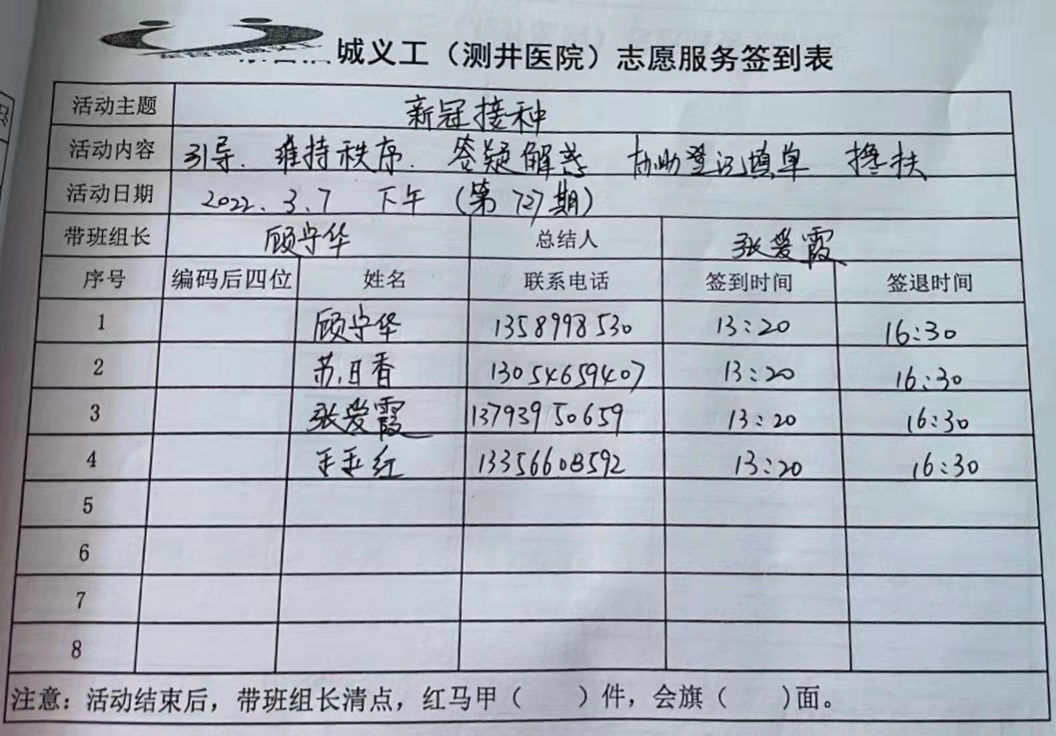 城义工（测井医院）志愿服务签到表
活动主题 新冠接种
活动内容 引导. 维持秩序. 答疑解惑 协助登记填单 搀扶
活动日期 2022.3.7 下午 (第727期)
带班组长 顾守华 总结人 张爱霞
序号 编码后四位 姓名 联系电话 签到时间 签退时间
1 顾守华 1358998530 13:20 16:30
2 苏日香 13054659407 13:20 16:30
3 张爱霞 13793950659 13:20 16:30
4 王玉红 13356608592 13:20 16:30
5
6
7
8
注意：活动结束后，带班组长清点，红马甲（ ）件，会旗（ ）面。